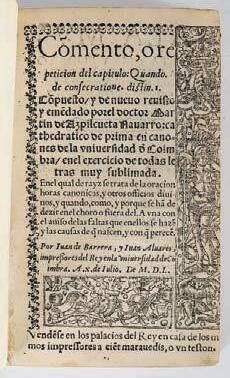 Cõmento, o re
peticion del capitulo: Quando.
de consecratione. distin. 1.
Cõpuesto, y de nueuo reuisto
y emẽdado por el doctor Mar
tin de Azpilcueta Nauarro ca
thedratico de prima en cano
nes de la vniuersidad ð Coim
bra/ en el exercicio de todas le
tras muy sublimada.
En el qual de rayz se trata de la oracion
horas canonicas, y otros officios diui
nos, y quando, como, y porque se hã de
dezir en el choro o fuera del. A vna con
el auiso de las faltas que en ellos se hazẽ
y las causas de q̃ nascen, y con q̃ perecẽ.
Por Iuan de Barrera, y Iuan Aluares
impressores del Rey en la vniuersidad de Co
imbra. A x. de Iulio. De M.D.L.
Vendẽse en los palacios del Rey en casa de los mis
mos impressores a ciẽt marauedis, o vn teston.